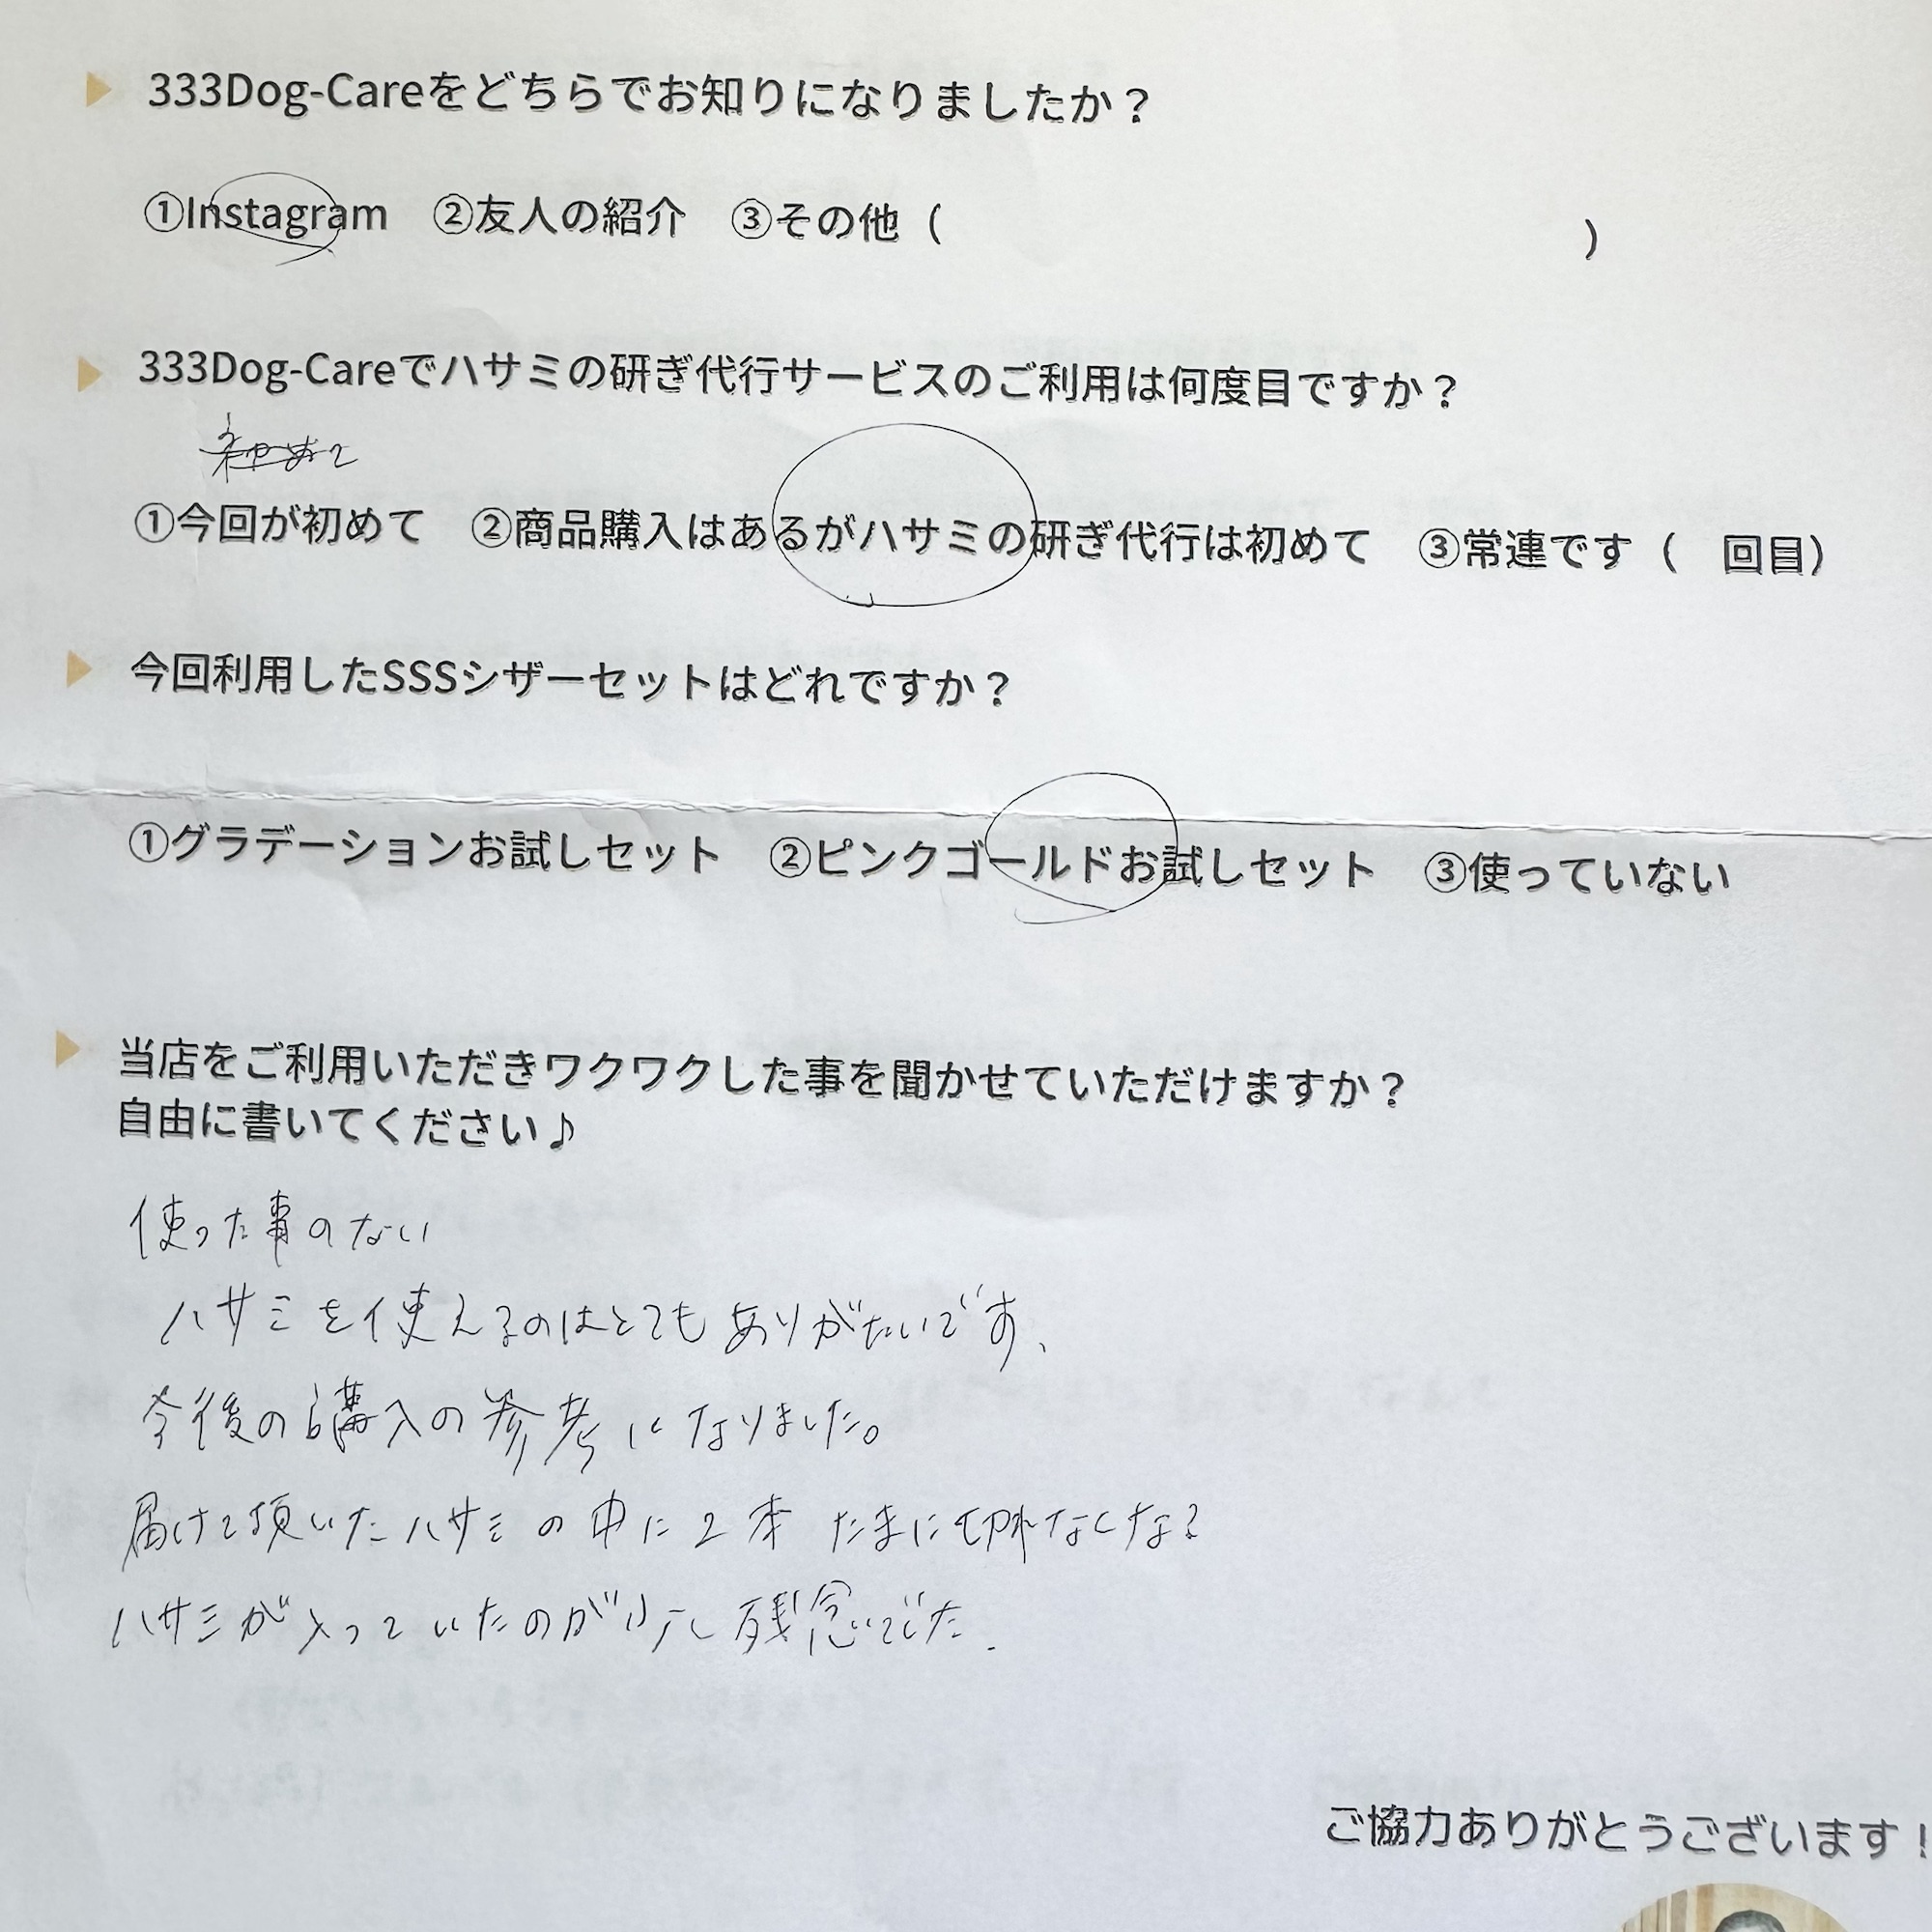 333Dog-Careをどちらでお知りになりましたか？
①Instagram　②友人の紹介　③その他（　　　　　　　　　　）
333Dog-Careでハサミの研ぎ代行サービスのご利用は何度目ですか？
初めて
①今回が初めて　②商品購入はあるがハサミの研ぎ代行は初めて　③常連です（　回目）
今回利用したSSSシザーセットはどれですか？
①グラデーションお試しセット　②ピンクゴールドお試しセット　③使っていない
当店をご利用いただきワクワクした事を聞かせていただけますか？
自由に書いてください♪
使った事のない
ハサミを使えるのはとてもありがたいです、
今後の購入の参考になりました。
届けて頂いたハサミの中に2本 たまに切れなくなる
ハサミが入っていたのが少し残念でした.
ご協力ありがとうございます！